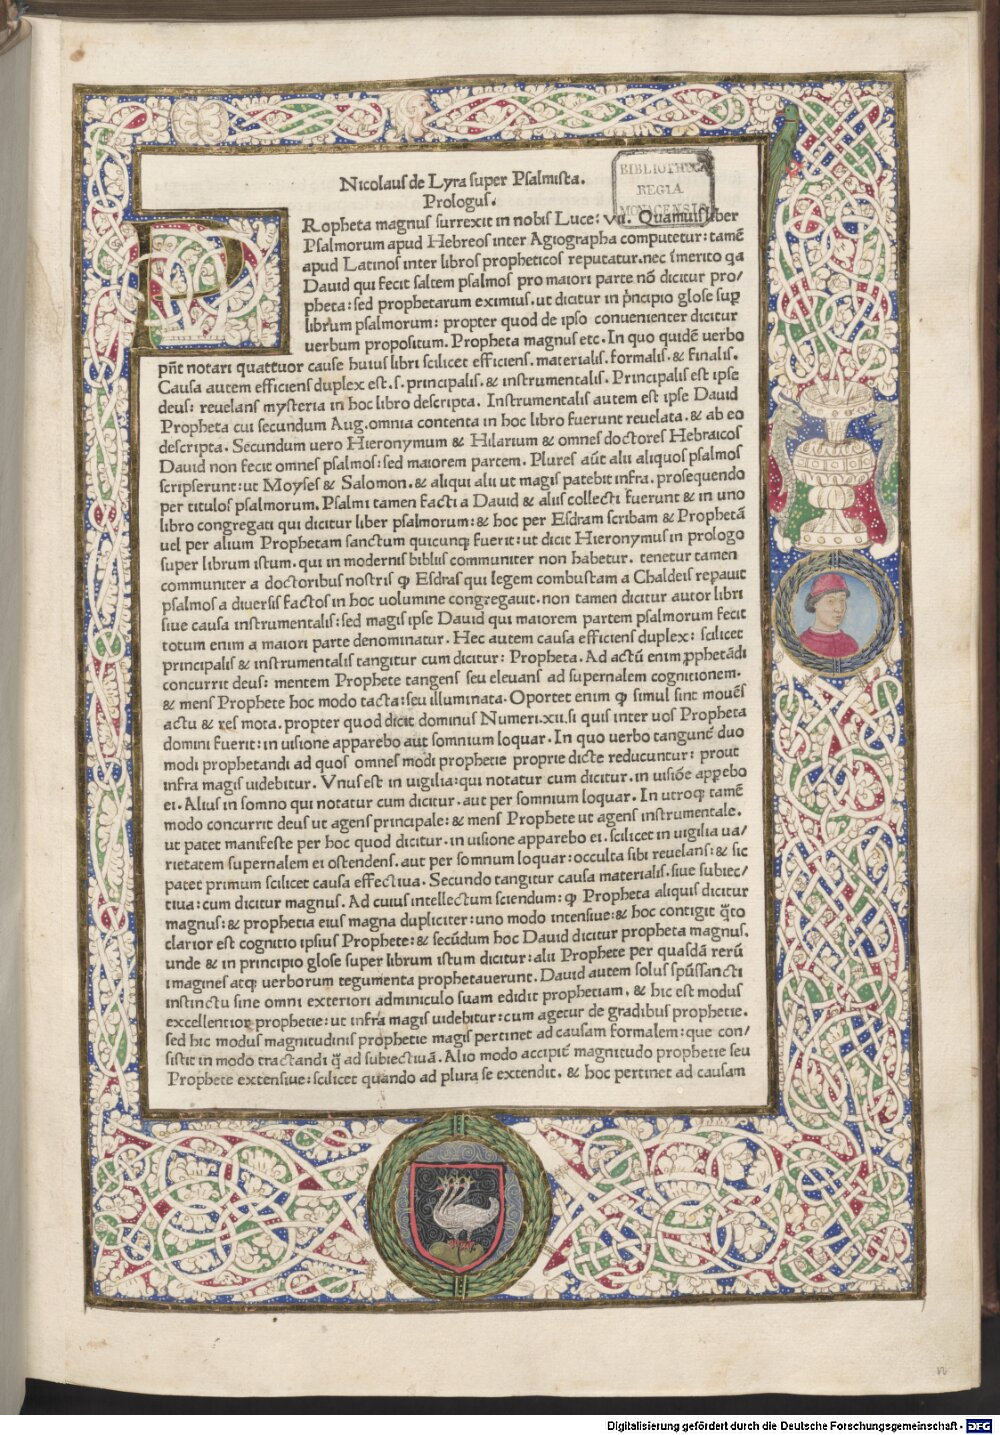 Nicolaus de Lyra super Psalmista.
Prologus.
BIBLIOTHECA
REGIA
MONACENSIS
PRopheta magnus surrexit in nobis Luce: vii. Quamuis liber
Psalmorum apud Hebreos inter Agiographa computetur: tamē
apud Latinos inter libros propheticos reputatur. nec īmerito qa
Dauid qui fecit saltem psalmos pro maiori parte nō dicitur pro/
pheta: sed prophetarum eximius. ut dicitur in prīcipio glose sup
librum psalmorum: propter quod de ipso conuenienter dicitur
uerbum propositum. Propheta magnus etc. In quo quidē uerbo
pn̄t notari quattuor cause huius libri scilicet efficiens. materialis. formalis. & finalis.
Causa autem efficiens duplex est. s. principalis. & instrumentalis. Principalis est ipse
deus: reuelans mysteria in hoc libro descripta. Instrumentalis autem est ipse Dauid
Propheta cui secundum Aug. omnia contenta in hoc libro fuerunt reuelata. & ab eo
descripta. Secundum uero Hieronymum & Hilarium & omnes doctores Hebraicos
Dauid non fecit omnes psalmos: sed maiorem partem. Plures aūt alii aliquos psalmos
scripserunt: ut Moyses & Salomon. & aliqui alii ut magis patebit infra. prosequendo
per titulos psalmorum. Psalmi tamen facti a Dauid & aliis collecti fuerunt & in uno
libro congregati qui dicitur liber psalmorum: & hoc per Esdram scribam & Prophetā
uel per alium Prophetam sanctum quicunq; fuerit: ut dicit Hieronymus in prologo
super librum istum. qui in modernis bibliis communiter non habetur. tenetur tamen
communiter a doctoribus nostris ꝙ Esdras qui legem combustam a Chaldeis repauit
psalmos a diuersis factos in hoc uolumine congregauit. non tamen dicitur autor libri
siue causa instrumentalis: sed magis ipse Dauid qui maiorem partem psalmorum fecit
totum enim a maiori parte denominatur. Hec autem causa efficiens duplex: scilicet
principalis & instrumentalis tangitur cum dicitur: Propheta. Ad actū enim ꝓphetādi
concurrit deus: mentem Prophete tangens seu eleuans ad supernalem cognitionem.
& mens Prophete hoc modo tacta: seu illuminata. Oportet enim ꝙ simul sint mouēs
actu & res mota. propter quod dicit dominus Numeri. xii. si quis inter uos Propheta
domini fuerit: in uisione apparebo aut somnium loquar. In quo uerbo tangunt̄ duo
modi prophetandi ad quos omnes modi prophetie proprie dicte reducuntur: prout
infra magis uidebitur. Vnus est in uigilia: qui notatur cum dicitur. in uisiōe appebo
ei. Alius in somno qui notatur cum dicitur. aut per somnium loquar. In utroq; tamē
modo concurrit deus ut agens principale: & mens Prophete ut agens instrumentale.
ut patet manifeste per hoc quod dicitur. in uisione apparebo ei. scilicet in uigilia ua/
rietatem supernalem ei ostendens. aut per somnum loquar: occulta sibi reuelans: & sic
patet primum scilicet causa effectiua. Secundo tangitur causa materialis. siue subiec/
tiua: cum dicitur magnus. Ad cuius intellectum sciendum: ꝙ Propheta aliquis dicitur
magnus: & prophetia eius magna dupliciter: uno modo intensiue: & hoc contigit q̄to
clarior est cognitio ipsius Prophete: & secūdum hoc Dauid dicitur propheta magnus.
unde & in principio glose super librum istum dicitur: alii Prophete per quasdā rerū
imagines atq; uerborum tegumenta prophetauerunt. Dauid autem solus spūssancti
instinctu sine omni exteriori adminiculo suam edidit prophetiam. & hic est modus
excellentior prophetie: ut infra magis uidebitur: cum agetur de gradibus prophetie.
sed hic modus magnitudinis prophetie magis pertinet ad causam formalem: que con/
sistit in modo tractandi q̄ ad subiectiuā. Alio modo accipit̄ magnitudo prophetie seu
Prophete extensiue: scilicet quando ad plura se extendit. & hoc pertinet ad causam
Digitalisierung gefördert durch die Deutsche Forschungsgemeinschaft - DFG